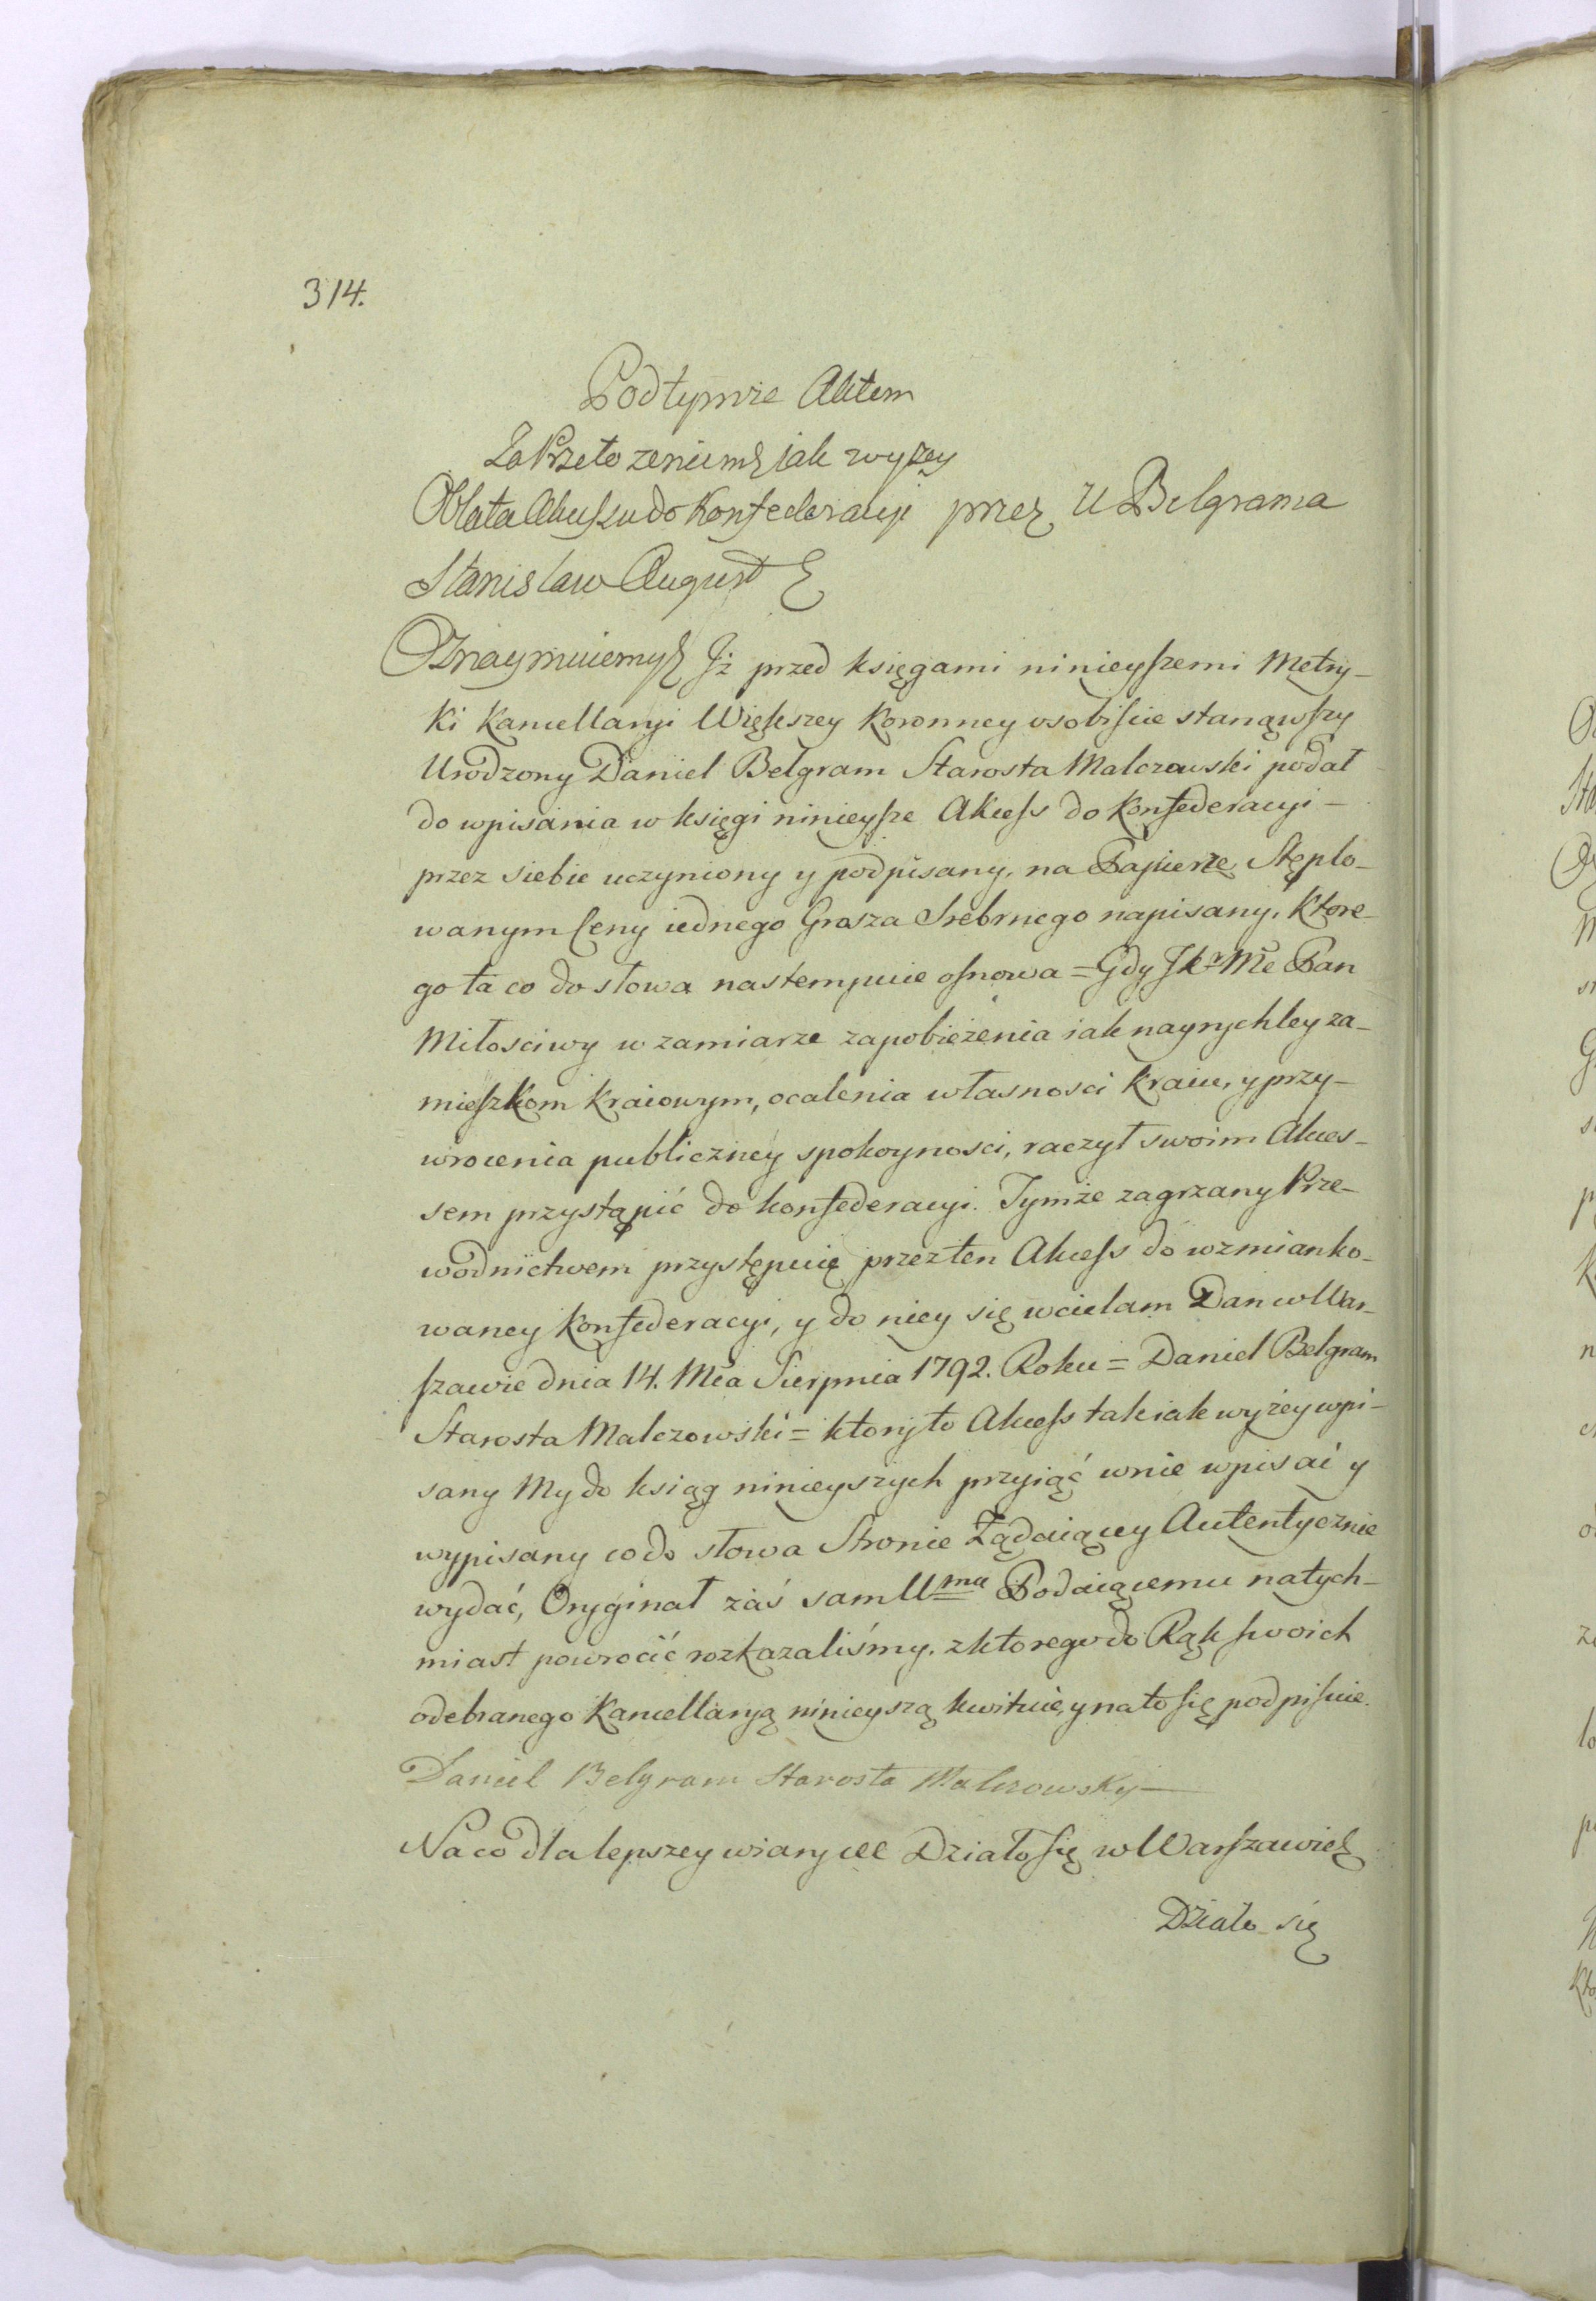 314.
Podtymże Aktem
Za Przełożeniem jak wyżey
Oblata Akcessu do Konfederacyi przez U Belgrama
Stanisław August
Oznaymuiemy Jż przed księgami ninieyszemi Metry-
ki Kancellaryi Większey Koronney osobiście stanąwszy
Urodzony Daniel Belgram Starosta Malczowski podał
do wpisania w księgi ninieysze Akcess do Konfederacyi -
przez siebie uczyniony y podpisany, na Papierze Stęplo-
wanym Ceny iednego Grosza Srebrnego napisany, Które-
go ta co do słowa nastempuie osnowa = Gdy Jkr Mć Pan
Miłościwy w zamiarze zapobieżenia iak nayrychley za-
mieszkom Kraiowym, ocalenia własności Kraiu, y przy-
wrocenia publiczney spokoyności, raczył swoim Akces-
sem przystąpić do konfederacyi. Tymże zagrzany Prze-
wodnictwem przystępuię przez ten Akcess do wzmianko-
waney Konfederacyi, y do niey się wcielam Dan w War-
szawie dnia 14. Mca Sierpnia 1792. Roku = Daniel Belgram
Starosta Malczowski = który to Akcess tak iak wyżey wpi-
sany My do ksiąg ninieyszych przyiąć w nie wpisać y
wypisany co do słowa Stronie Żądaiącey Autentycznie
wydać, Oryginał zaś sam Umu Podaiącemu natych-
miast powrócić rozkazaliśmy. z którego do Rąk swoich
odebranego Kancellaryą ninieyszą kwituie, y na to się podpisuie.
Daniel Belgram Starosta Malczowsky
Na co dla lepszey wiary etc Działo się w Warszawie
Działo się